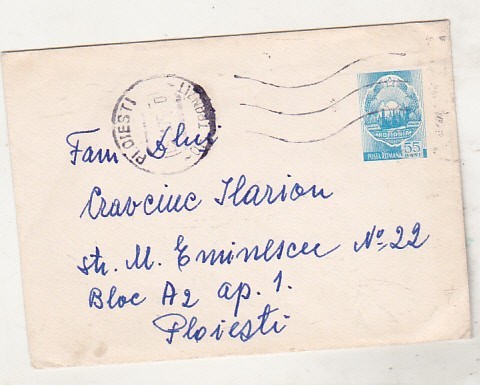 PLOIESTI
ROMANIA
POSTA ROMANA 55 BANI
Fam. Dlui
Cravciuc Ilarion
str. M. Eminescu No 22
Bloc A2 ap. 1.
Ploiești